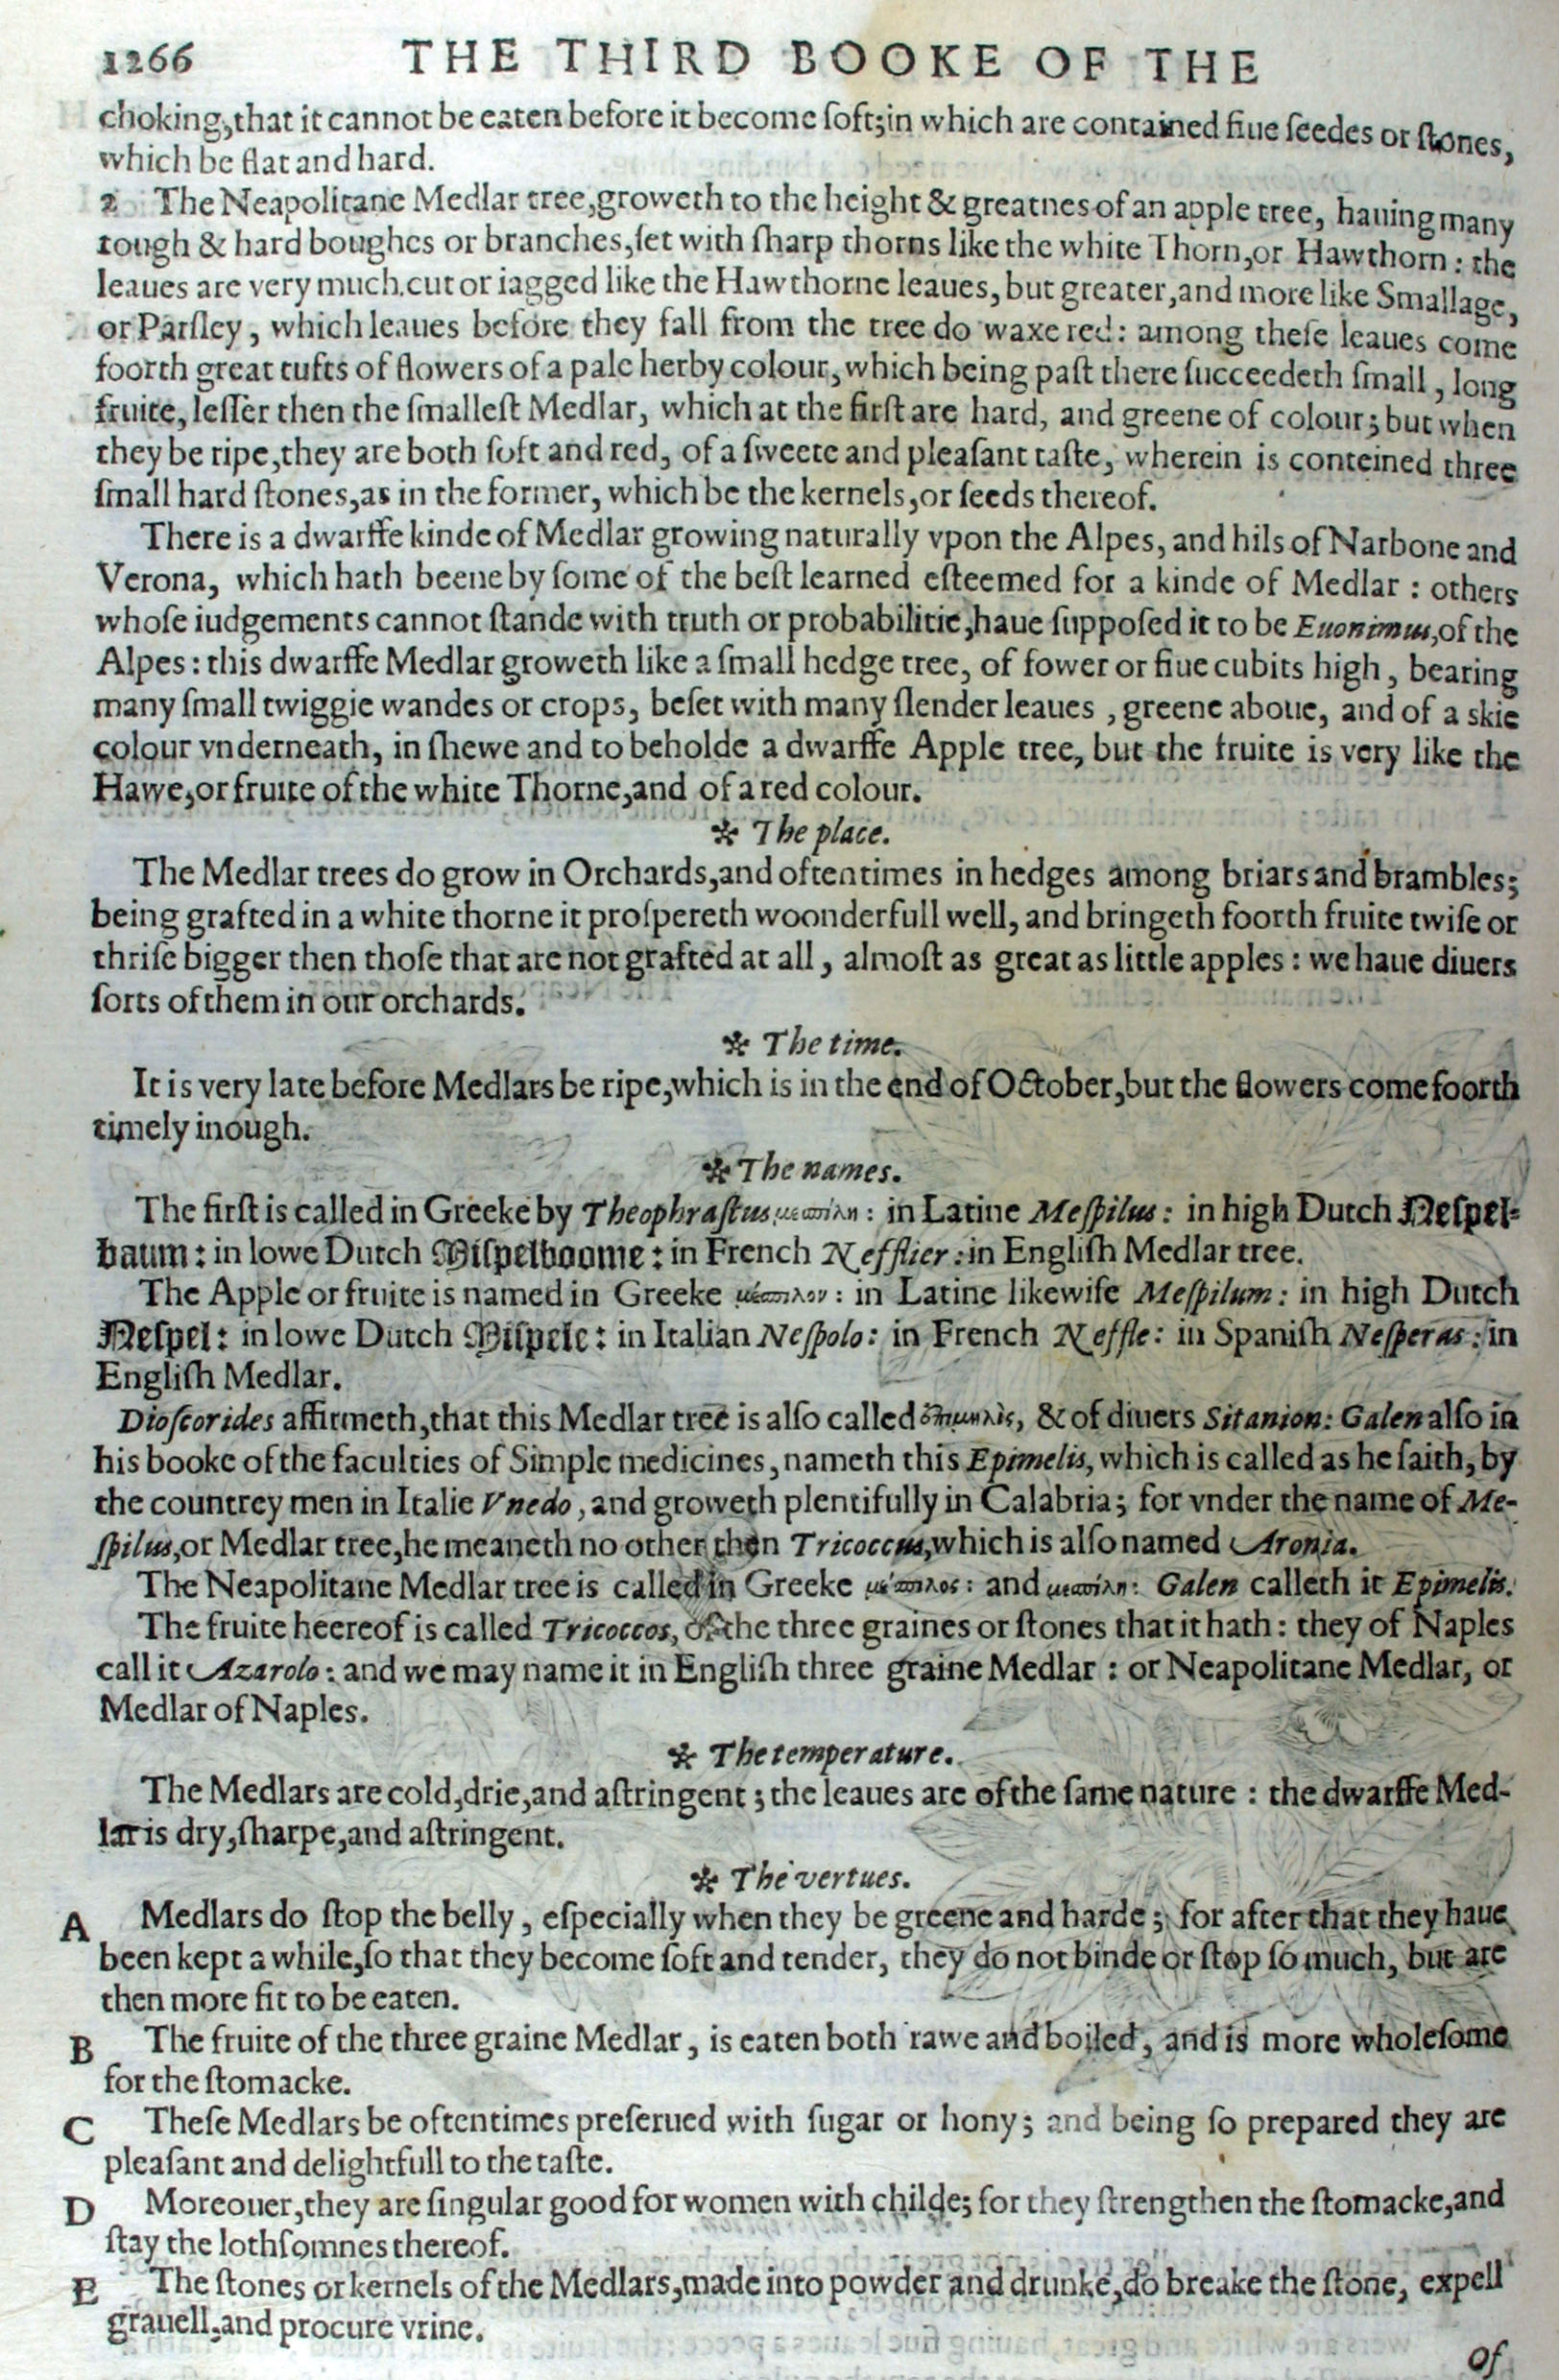 1266 THE THIRD BOOKE OF THE
choking,that it cannot be eaten before it become ſoft;in which are contained fiue ſeedes or ſtones,
which be flat and hard.
2 The Neapolitane Medlar tree,groweth to the height & greatnes of an apple tree, hauing many
tough & hard boughes or branches,ſet with ſharp thorns like the white Thorn,or Hawthorn : the
leaues are very much cut or iagged like the Hawthorne leaues, but greater,and more like Smallage,
or Parſley, which leaues before they fall from the tree do waxe red: among theſe leaues come
foorth great tufts of flowers of a pale herby colour, which being paſt there ſucceedeth ſmall, long
fruite, leſſer then the ſmalleſt Medlar, which at the firſt are hard, and greene of colour; but when
they be ripe,they are both ſoft and red, of a ſweete and pleaſant taſte, wherein is conteined three
ſmall hard ſtones,as in the former, which be the kernels,or ſeeds thereof.
There is a dwarffe kinde of Medlar growing naturally vpon the Alpes, and hils of Narbone and
Verona, which hath beene by ſome of the beſt learned eſteemed for a kinde of Medlar : others
whoſe iudgements cannot ſtande with truth or probabilitie,haue ſuppoſed it to be Euonimus,of the
Alpes: this dwarffe Medlar groweth like a ſmall hedge tree, of fower or fiue cubits high, bearing
many ſmall twiggie wandes or crops, beſet with many ſlender leaues , greene aboue, and of a skie
colour vnderneath, in ſhewe and to beholde a dwarffe Apple tree, but the fruite is very like the
Hawe,or fruite of the white Thorne,and of a red colour.
✻ The place.
The Medlar trees do grow in Orchards,and oftentimes in hedges among briars and brambles;
being grafted in a white thorne it proſpereth woonderfull well, and bringeth foorth fruite twiſe or
thriſe bigger then thoſe that are not grafted at all, almoſt as great as little apples: we haue diuers
ſorts of them in our orchards.
✻ The time.
It is very late before Medlars be ripe,which is in the end of October,but the flowers come foorth
timely inough.
✻ The names.
The firſt is called in Greeke by Theophraſtus μεσπίλη: in Latine Meſpilus: in high Dutch Neſpel-
baum: in lowe Dutch Miſpelboome: in French Nefflier: in Engliſh Medlar tree.
The Apple or fruite is named in Greeke μέσπιλον: in Latine likewiſe Meſpilum: in high Dutch
Neſpel: in lowe Dutch Miſpele: in Italian Neſpolo: in French Neffle: in Spaniſh Neſperas: in
Engliſh Medlar.
Dioſcorides affirmeth,that this Medlar tree is alſo called ἐπιμηλὶς, & of diuers Sitanion: Galen alſo in
his booke of the faculties of Simple medicines, nameth this Epimelis, which is called as he ſaith, by
the countrey men in Italie Vnedo, and groweth plentifully in Calabria; for vnder the name of Me-
ſpilus,or Medlar tree,he meaneth no other then Tricoccus,which is alſo named Aronia.
The Neapolitane Medlar tree is called in Greeke μέσπιλος: and μεσπίλη: Galen calleth it Epimelis.
The fruite heereof is called Tricoccos, of the three graines or ſtones that it hath: they of Naples
call it Azarolo: and we may name it in Engliſh three graine Medlar : or Neapolitane Medlar, or
Medlar of Naples.
✻ The temperature.
The Medlars are cold,drie,and aſtringent; the leaues are of the ſame nature : the dwarffe Med-
lar is dry,ſharpe,and aſtringent.
✻ The vertues.
A Medlars do ſtop the belly, eſpecially when they be greene and harde; for after that they haue
been kept a while,ſo that they become ſoft and tender, they do not binde or ſtop ſo much, but are
then more fit to be eaten.
B The fruite of the three graine Medlar, is eaten both rawe and boiled, and is more wholeſome
for the ſtomacke.
C Theſe Medlars be oftentimes preſerued with ſugar or hony; and being ſo prepared they are
pleaſant and delightfull to the taſte.
D Moreouer,they are ſingular good for women with childe; for they ſtrengthen the ſtomacke,and
ſtay the lothſomnes thereof.
E The ſtones or kernels of the Medlars,made into powder and drunke,do breake the ſtone, expell
grauell,and procure vrine.
Of